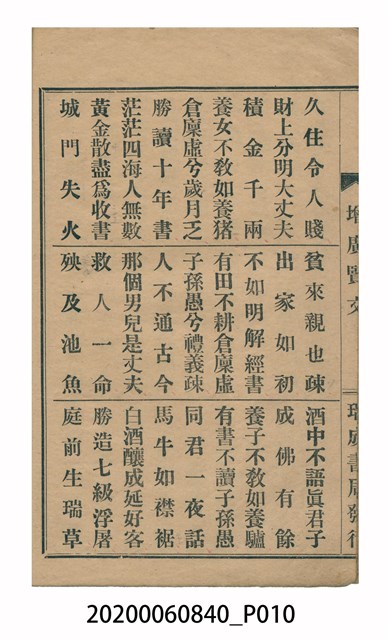 增廣賢文
瑞成書局發行
久住令人賤 貧來親也疎 酒中不語眞君子
財上分明大丈夫 出家如初 成佛有餘
積金千兩 不如明解經書 養子不敎如養驢
養女不敎如養猪 有田不耕倉廩虛 有書不讀子孫愚
倉廩虛兮歲月乏 子孫愚兮禮義疎 同君一夜話
勝讀十年書 人不通古今 馬牛如襟裾
茫茫四海人無數 那個男兒是丈夫 白酒釀成延好客
黃金散盡爲收書 救人一命 勝造七級浮屠
城門失火 殃及池魚 庭前生瑞草
20200060840_P010